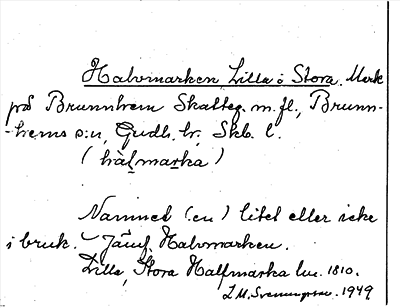 Halvmarken Lilla o Stora. Mark
på Brunnhem Skatteg. m. fl., Brunn-
-hems s:n, Gudh. hr, Skb. l.
(hàlmarka)
Namnet (en) litet eller icke
i bruk. Jämf. Halvmarken.
Lilla, Stora Halfmarka lm. 1810.
I. M. Svennungsson. 1949